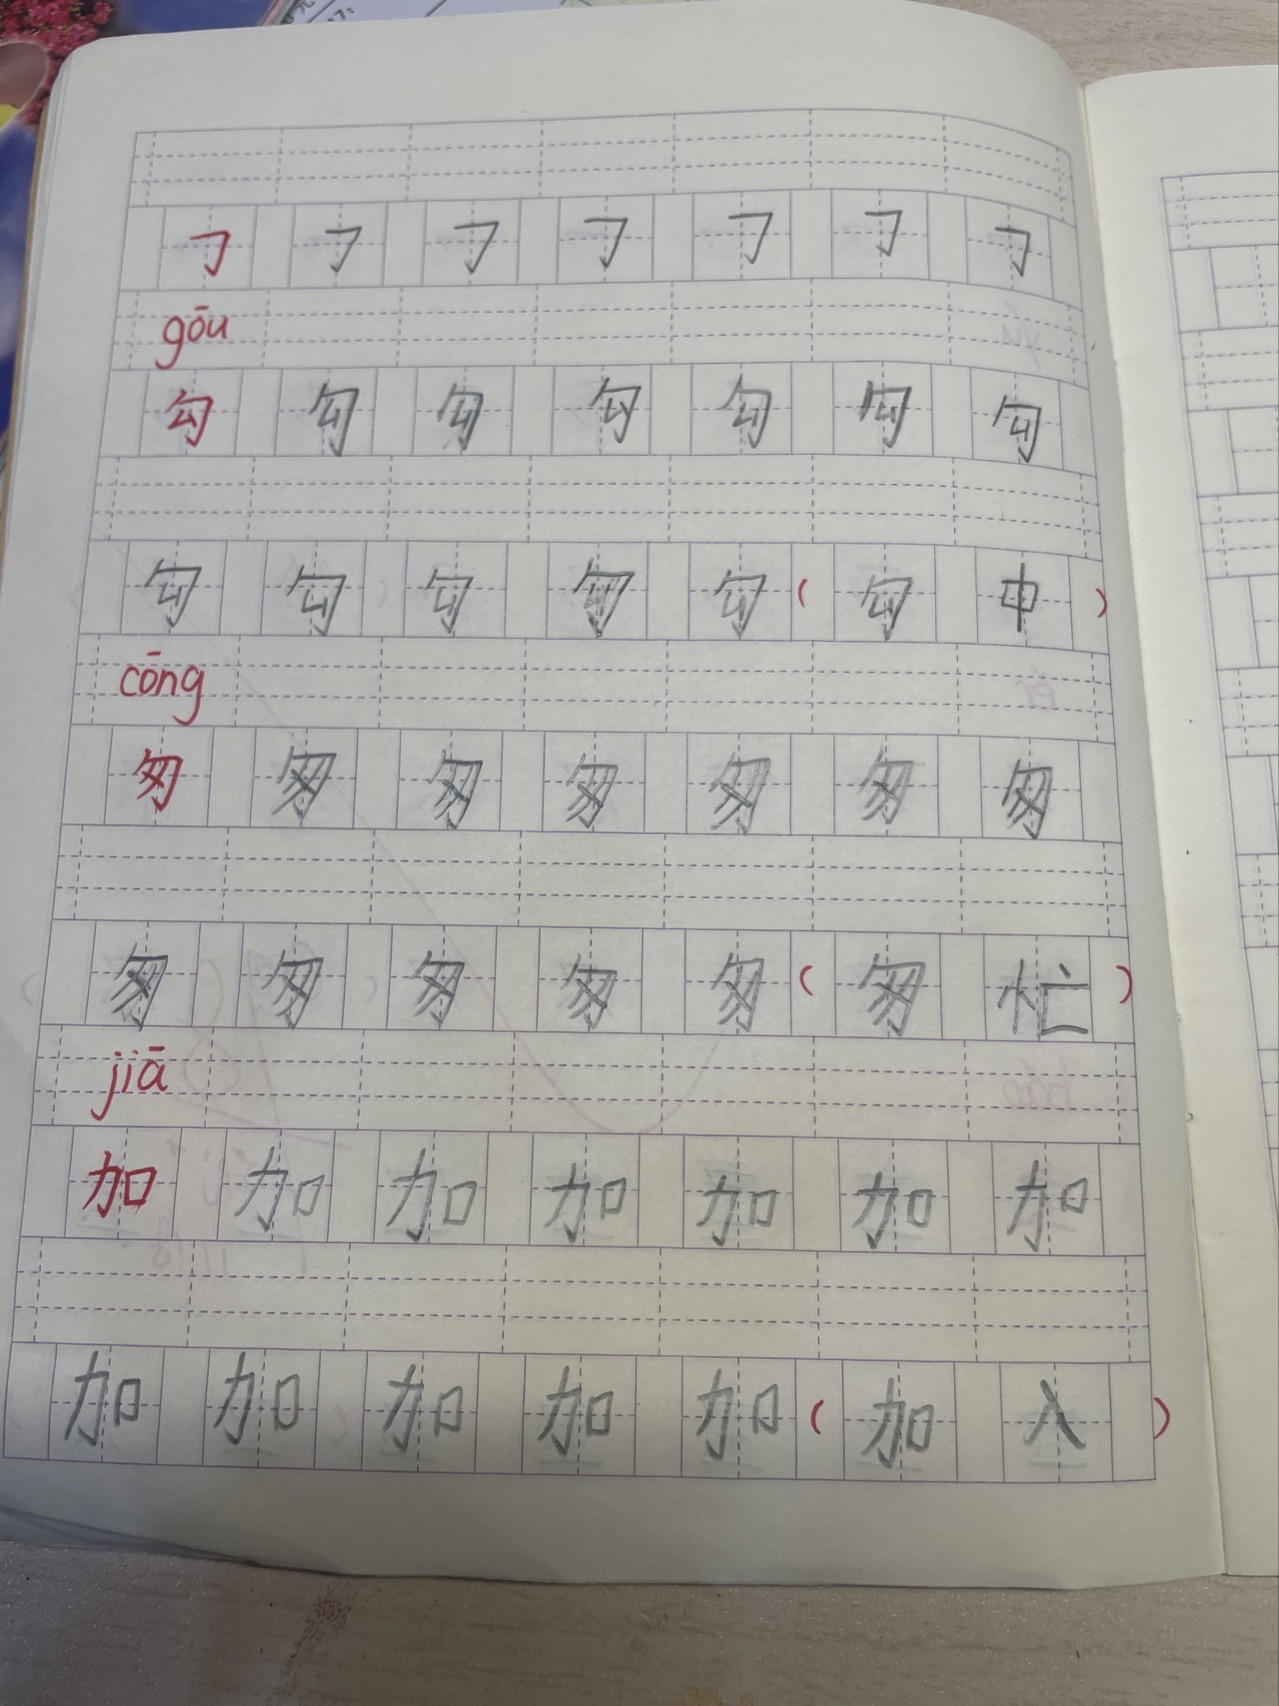 𠃌 𠃌 𠃌 𠃌 𠃌 𠃌 𠃌
gōu
勾 勾 勾 勾 勾 勾 勾
勾 勾 勾 勾 勾 ( 勾 中 )
cōng
匆 匆 匆 匆 匆 匆 匆
匆 匆 匆 匆 匆 ( 匆 忙 )
jiā
加 加 加 加 加 加 加
加 加 加 加 加 ( 加 入 )